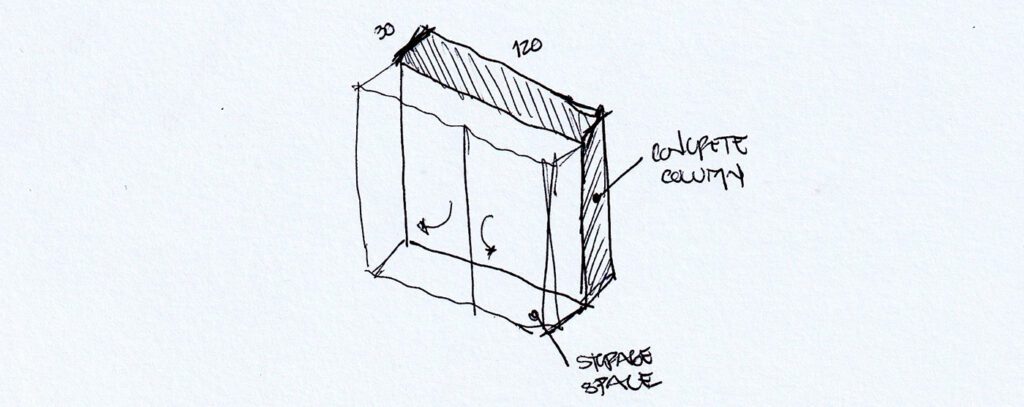 30
120
CONCRETE
COLUMN
STORAGE
SPACE